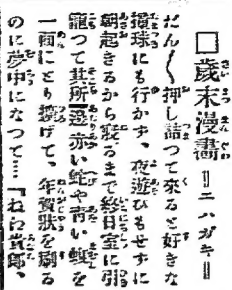 □歳末漫畵 ＝ニハガキ＝
だん〱押し詰つて來ると好きな
撞球にも行かず、夜遊びもせずに
朝起きるから寢るまで終日室に引
籠つて其所一邊赤い蛇や靑い蛾を
一面にとり擴げて、年賀狀を刷る
のに夢中になつて…『ねね貴郎、